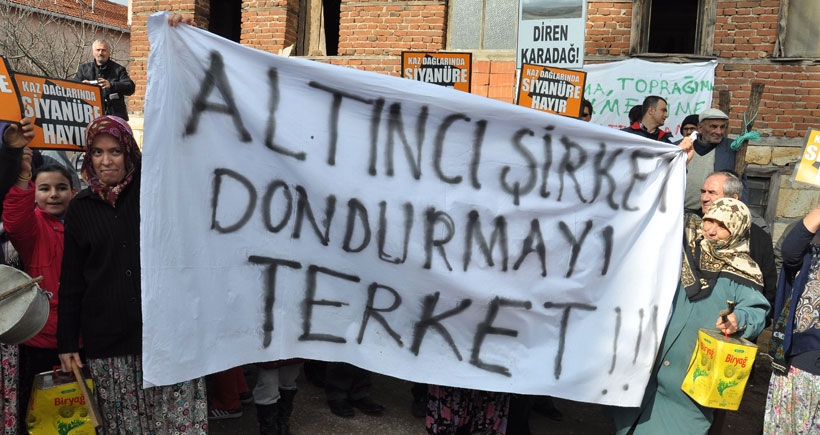 DİREN
KARADAĞ!
KAZ DAĞLARINDA
SİYANÜRE
KAZ DAĞLARINDA
SİYANÜRE
HAYIR
KAZ DAĞLARINDA
SİYANÜRE
HAYIR
TOPRAĞIMA
ALTINCI ŞİRKET
DONDURMAYI
TERKET !!!
Biryağ
Biryağ